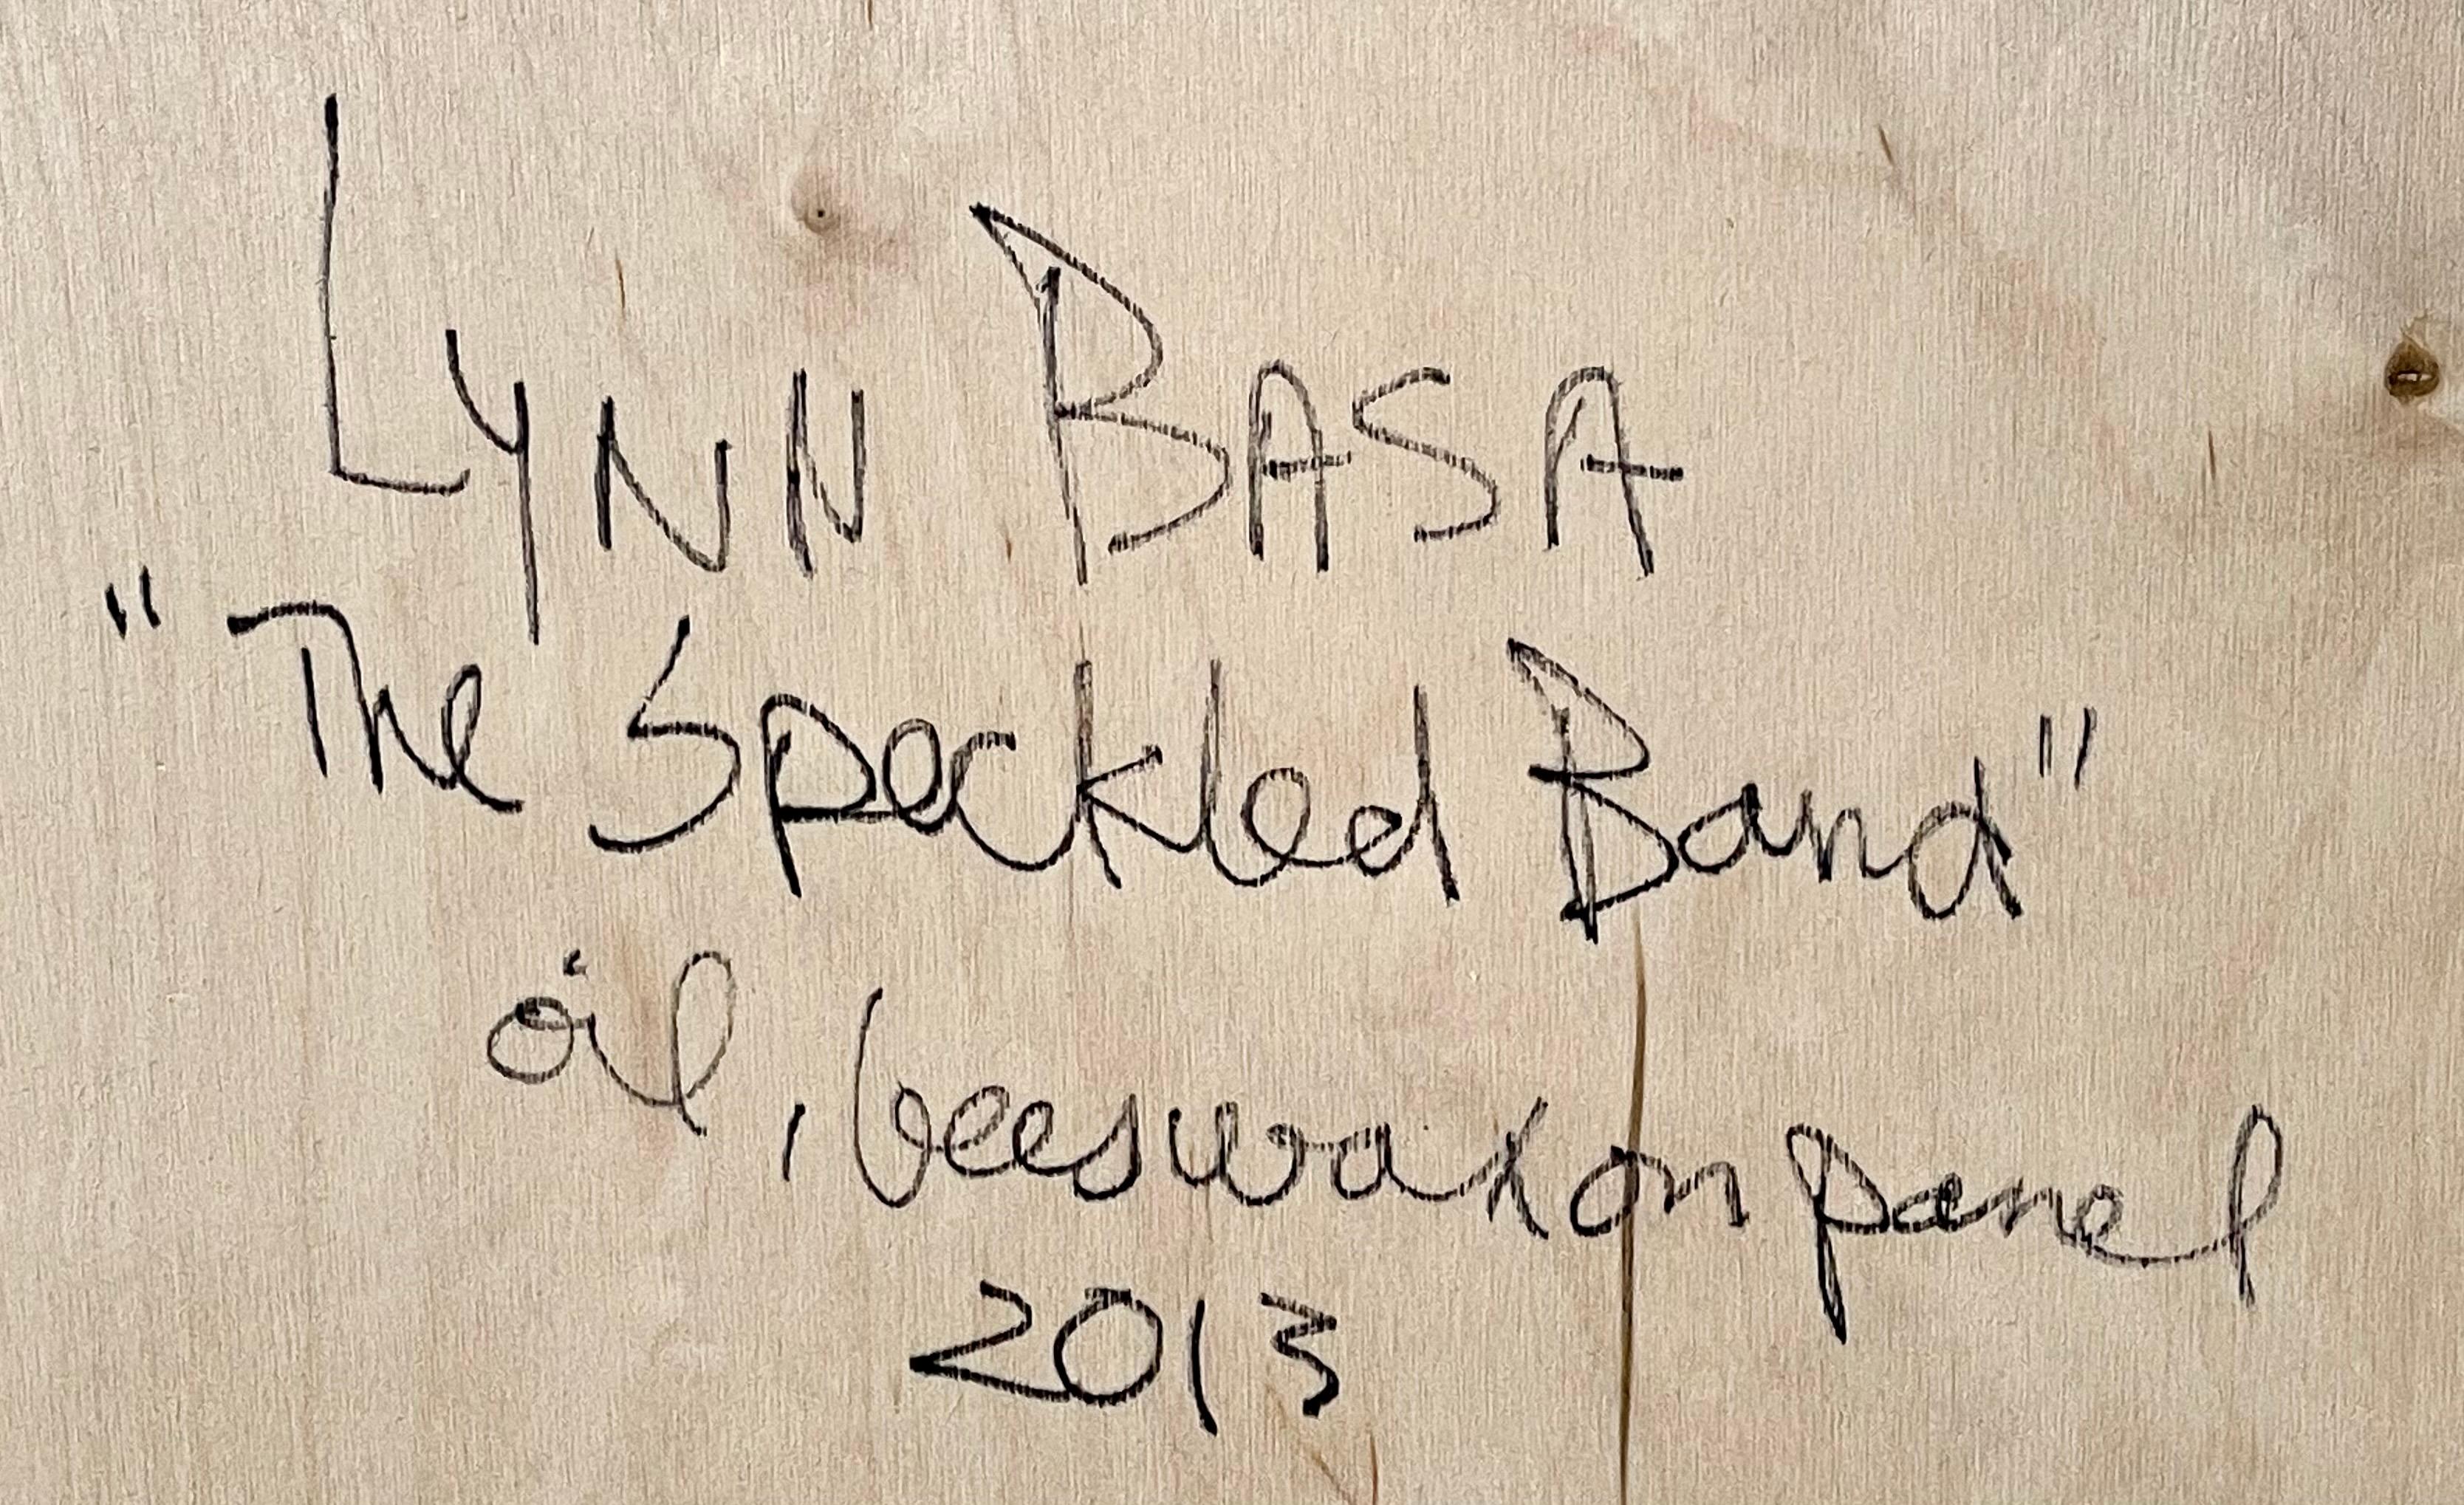 LYNN BASA
"The Speckled Band"
oil, beeswax on panel
2013